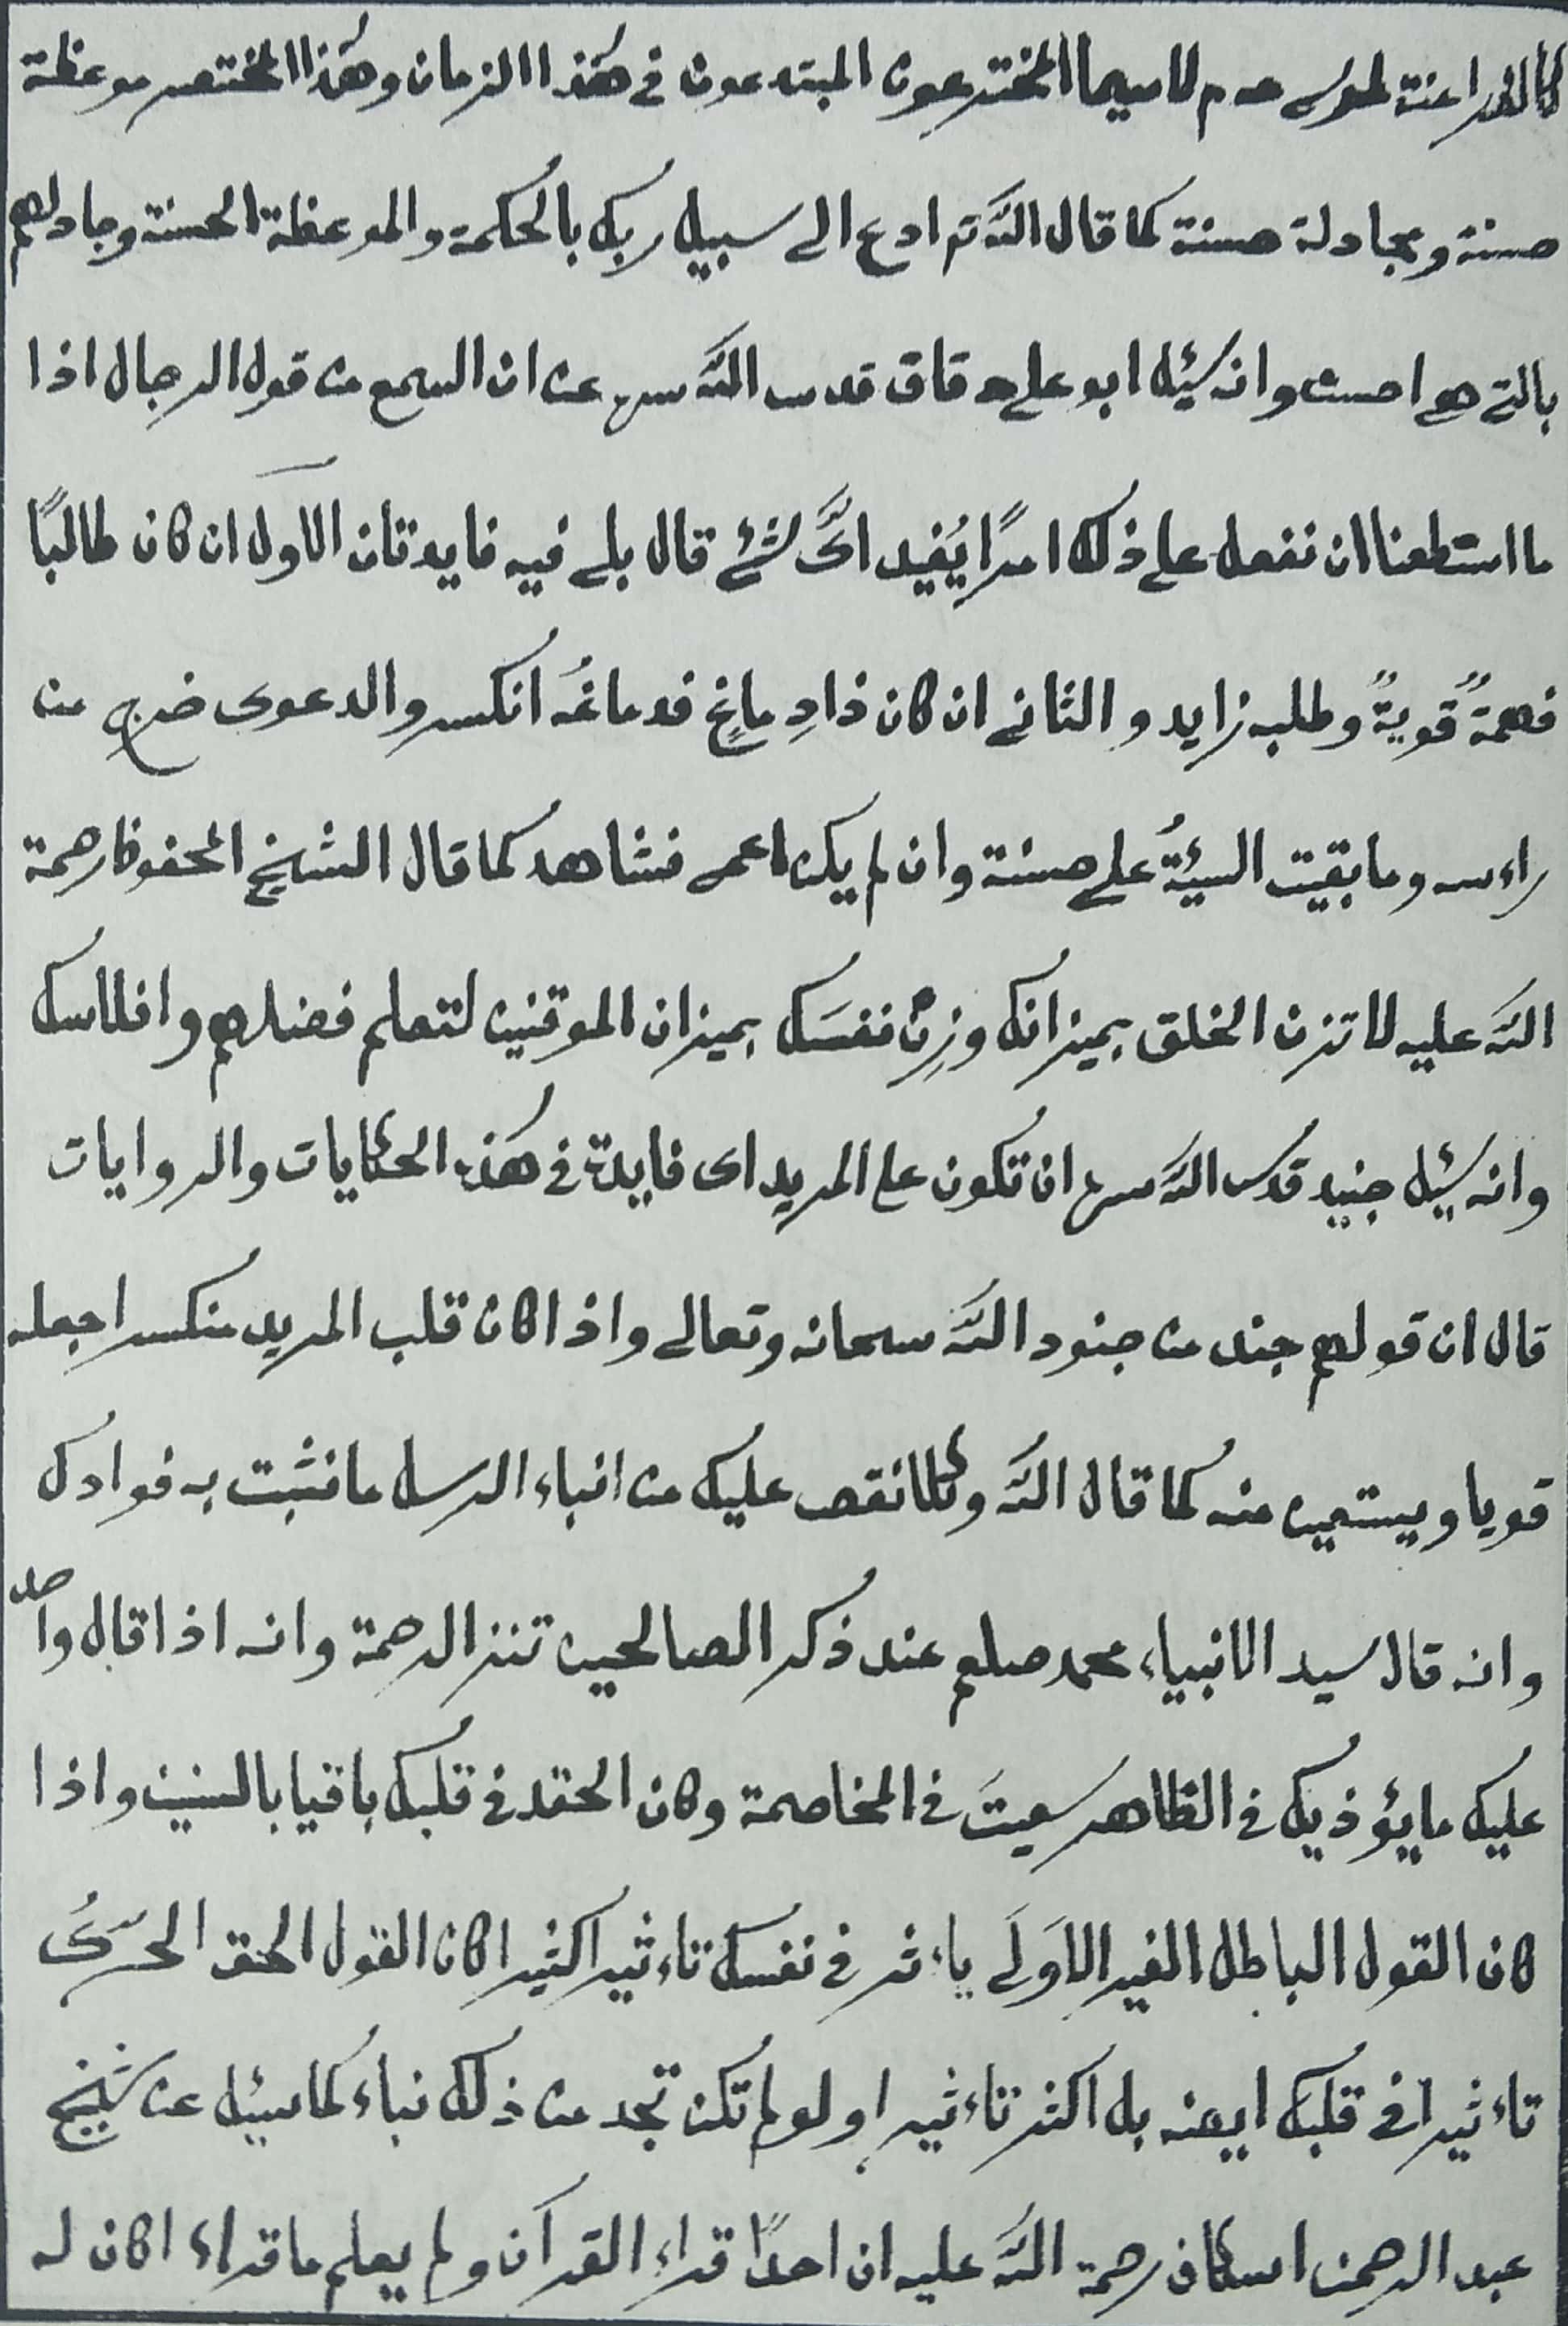 كالفراعنة لموسى عم لاسيما المخترعون المبتدعون فى هٰذا الزمان وهٰذا المختصر موعظة
حسنة ومجادلة حسنة كما قال اللّه تع ادع الى سبيل ربك بالحكمة والموعظة الحسنة وجادلهم
بالتى هى احسن وانه سئل ابو على دقاق قدس اللّه سره عن ان السمع من قول الرجال اذا
ما استطعنا ان نفعل على ذلك امرًا يُفيد اىَّ شئ قال بلى فيه فايدتان الاول ان كان طالبًا
فهمةً قويةً وطلبه زايد و الثانى ان كان ذا دِماغٍ فدماغُه انكسر والدعوى خرج من
راءسه وما بقيت السيئةُ على حسنة وان لم يكن اعمى فشاهد كما قال الشيخ المحفوظ رحمة
اللّه عليه لا تزن الخلق بميزانك وزِنْ نفسَك بميزان الموقنين لتعلم فضلهم وافلاسك
وانه سئل جنيد قدس اللّه سره ان تكون على المريد اى فايدة فى هٰذه الحكايات والروايات
قال ان قولهم جند من جنود اللّه سبحانه وتعالى واذا كان قلب المريد منكسرا جعله
قويا ويستعين منه كما قال اللّه وكلا نقص عليك من انباء الرسل ما نثبت به فوادك
وانه قال سيد الانبياء محمد صلعم عند ذكر الصالحين تنز الرحمة وانه اذا قال واحد
عليك ما يؤذيك فى الظاهر سعيتَ فى المخاصمة وكان الحقد فى قلبك باقيا بالسنين واذا
كان القول الباطل الغير الاَولَى ياءثر فى نفسك تاءثيرا كثيرا كان القول الحق الحرىُّ
تاءثيرا فى قلبك ايضه بل اكثر تاءثيرا ولو لم تكن تجد من ذلك نباء كما سئل عن شيخ
عبد الرحمن اسكاف رحمة اللّه عليه ان احدًا قراء القرآن ولم يعلم ما قراء اكان له